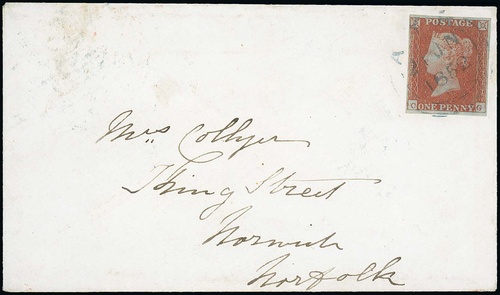 POSTAGE
ONE PENNY
C G
Mrs Collyer
King Street
Norwich
Norfolk